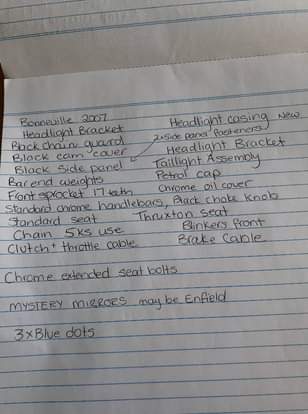 Bonneville 2007
Headlight casing New
Headlight Bracket
2x side panel fasteners
Black chain guard
Headlight Bracket
Black cam cover
Taillight Assembly
Black side panel
Petrol cap
Bar end weights
Chrome oil cover
Front sprocket 17 teeth
Standard chrome handlebars, Black choke knob
Standard seat
Thruxton seat
Chain 5ks use
Blinkers front
Clutch + throttle cable
Brake Cable
Chrome extended seat bolts
MYSTERY MIRRORS may be Enfield
3xBlue dots